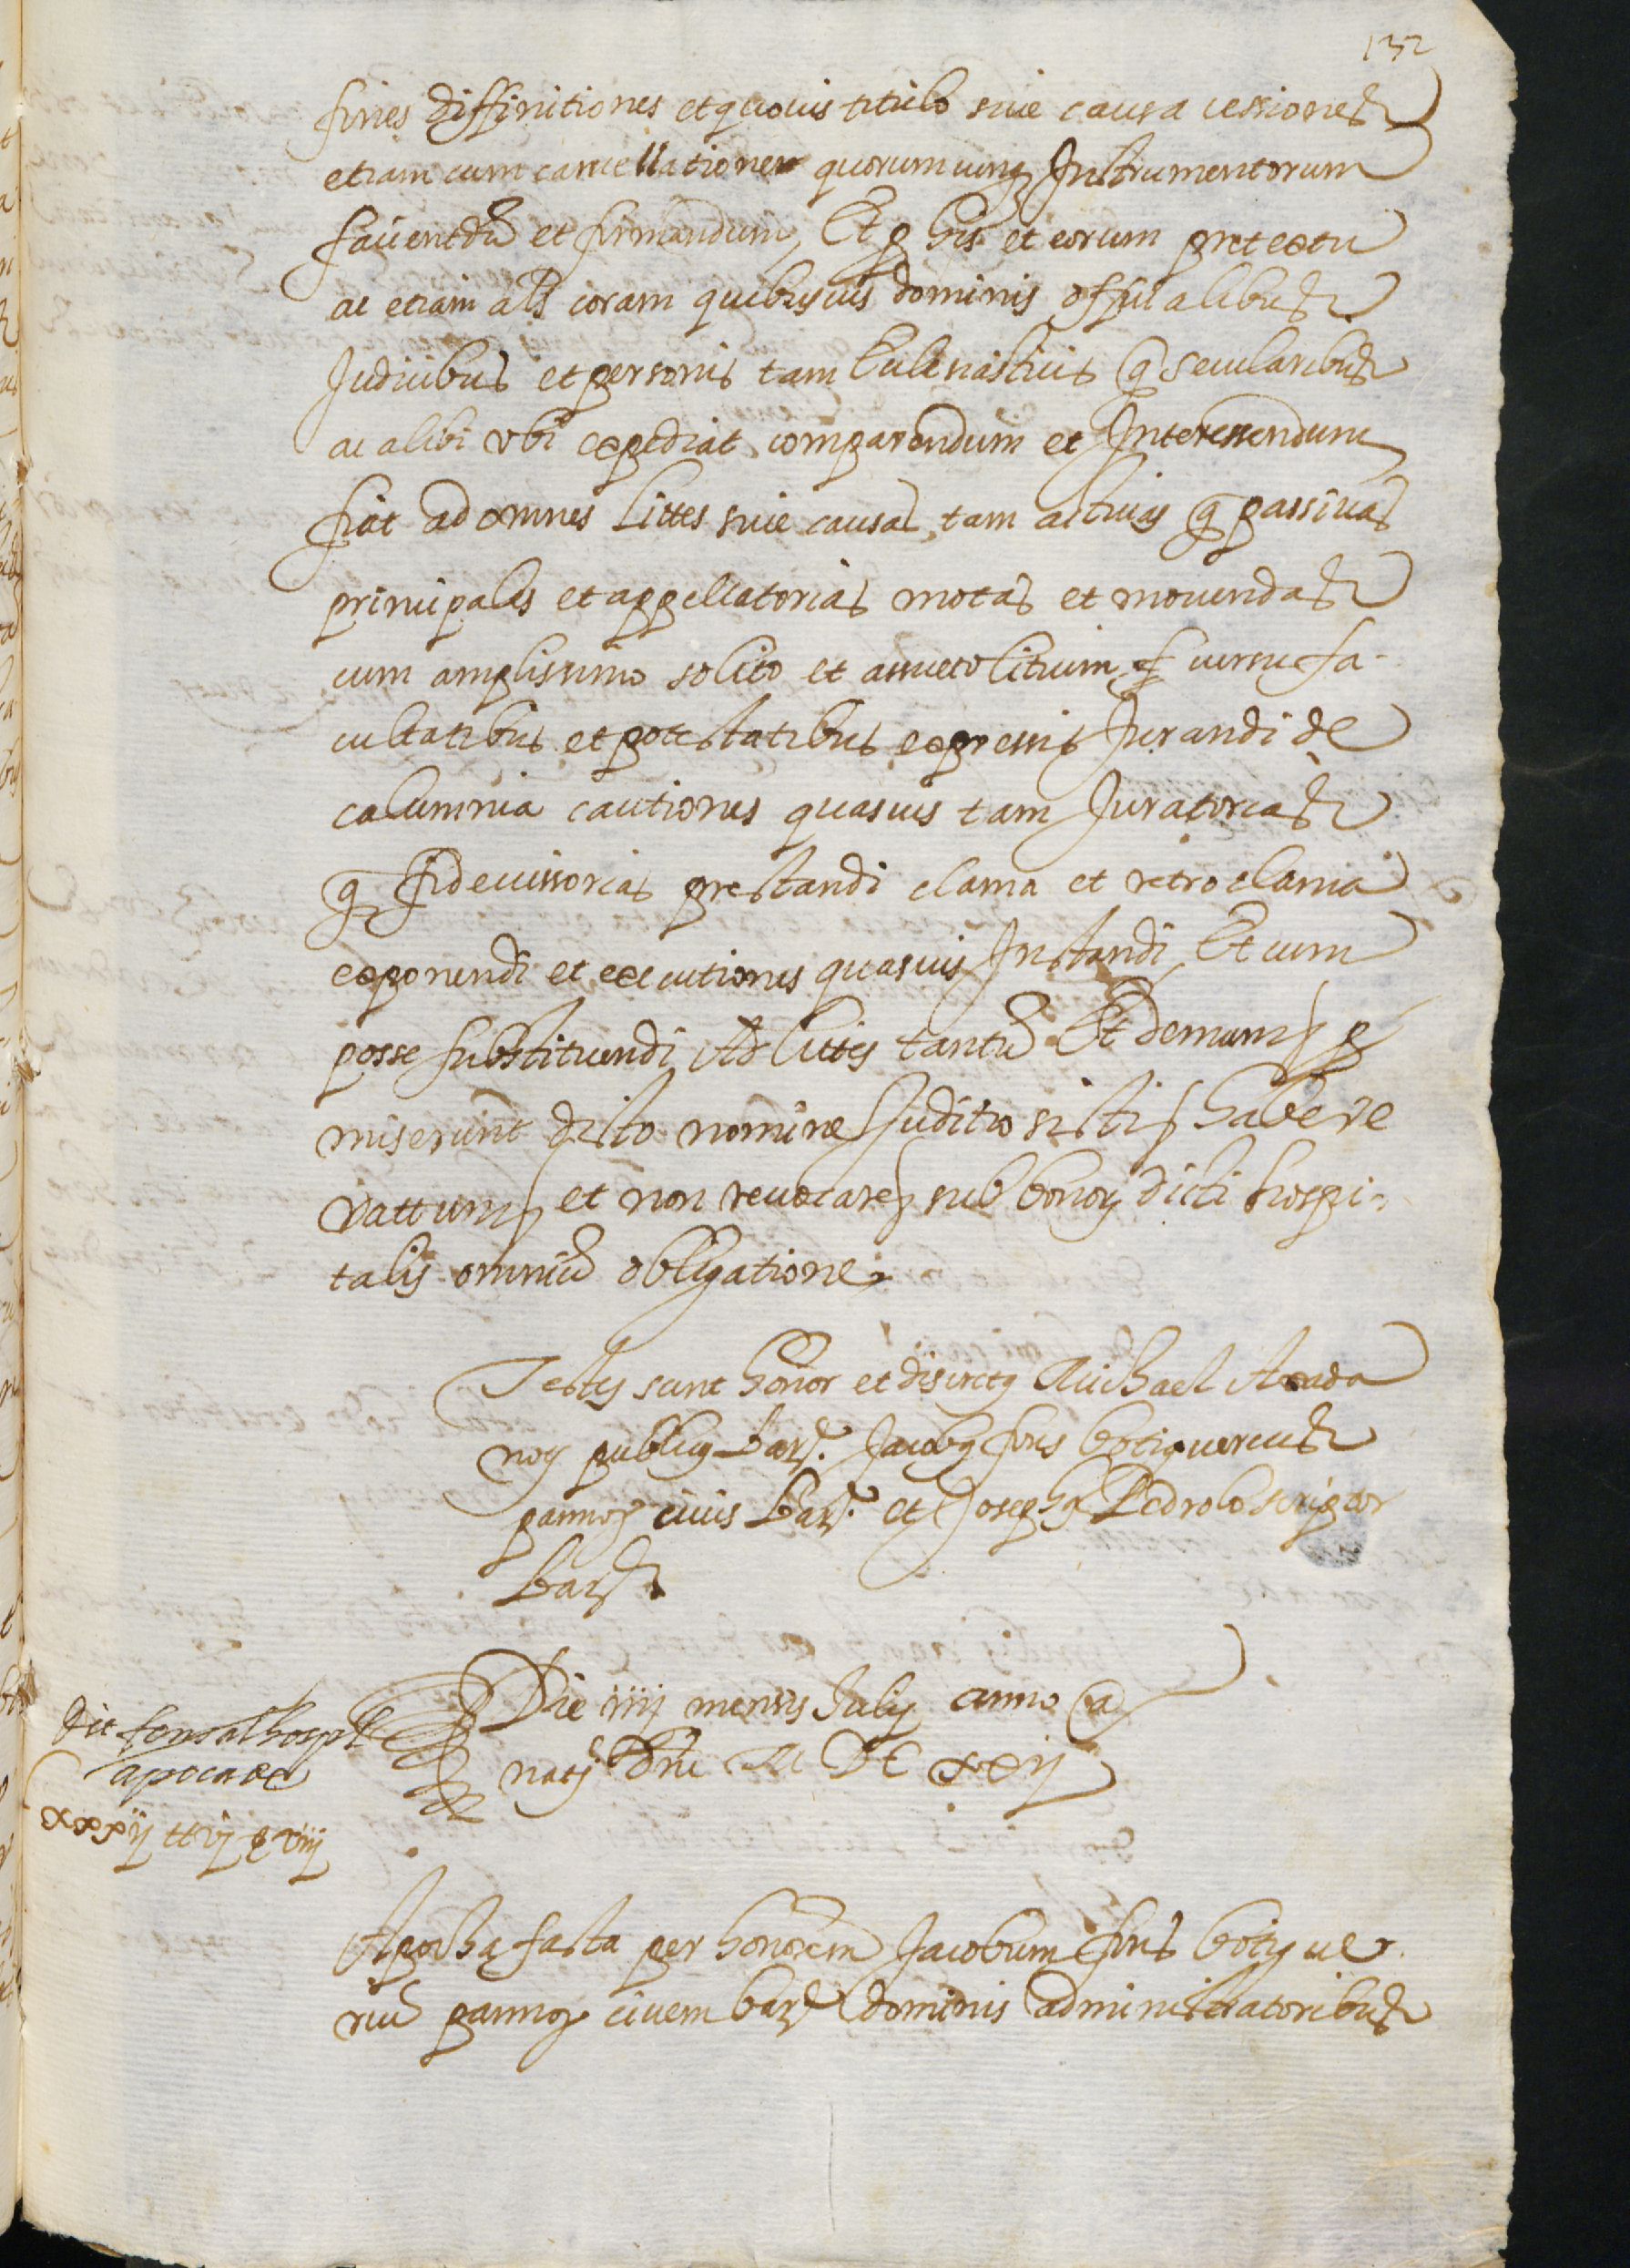 132
fines diffinitiones et quovis titulo sive causa cessiones
etiam cum cancellatione quorumcunq Instrumentorum
faciendũ et firmandum, Et p his et eorum pretextu
ac etiam als coram quibusvis dominis officialibus
Judicibus et personis tam Ecclesiasticis q secularibus
ac alibi ubi expediat comparendum et Interessendum
fiat ad omnes littes sive causas tam activas q passivas
principales et appellatorias motas et movendas
cum amplissimo solito et assueto litium cursu fa-
cultatibus et potestatibus expressis Jurandi de
calumnia cautiones quasvis tam Juratorias
q fideiussorias prestandi clama et retroclama
exponendi et executiones quasvis Instandi Et cum
posse substituendi Ad littes tantũ Et demum p
miserunt dicto nomine Juditio sisti habere
rattum et non revocare sub bonoꝝ dicti hospi-
talis omniũ obligatione
Testes sunt honor et discretꝰ Michael Axada
noꝰ publicꝰ barꝰ. Jacobꝰ fons botiguerius
pannoꝝ civis barꝰ. et Josephꝰ Pedrolo scriptor
barꝰ
Die iiij mensis Julij anno a
natꝭ Dñi M DC xxij
Dit fons al hospl
apoca de
xxxij ℔ vj ẜ viij
Apocha facta per honorem Jacobum fons botigue
riũ pannoꝝ civem barꝰ dominis administratoribus